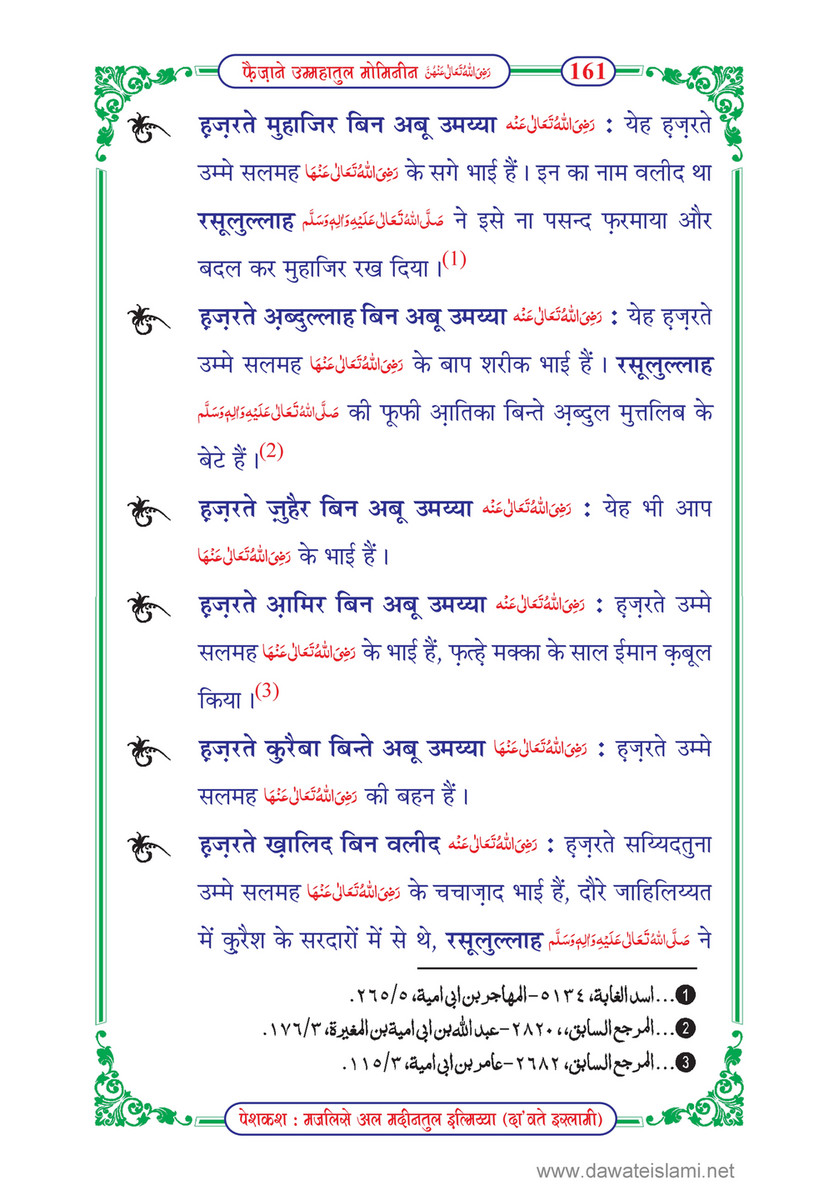 फ़ैज़ाने उम्महातुल मोमिनीन رَضِیَ اللہُ تَعَالٰی عَنْہُنَّ 161
ह़ज़रते मुहाजिर बिन अबू उमय्या رَضِیَ اللہُ تَعَالٰی عَنْہ : येह ह़ज़रते
उम्मे सलमह رَضِیَ اللہُ تَعَالٰی عَنْہَا के सगे भाई हैं। इन का नाम वलीद था
रसूलुल्लाह صَلَّی اللہُ تَعَالٰی عَلَیْہِ وَاٰلِہٖ وَسَلَّم ने इसे ना पसन्द फ़रमाया और
बदल कर मुहाजिर रख दिया।(1)
ह़ज़रते अ़ब्दुल्लाह बिन अबू उमय्या رَضِیَ اللہُ تَعَالٰی عَنْہ : येह ह़ज़रते
उम्मे सलमह رَضِیَ اللہُ تَعَالٰی عَنْہَا के बाप शरीक भाई हैं। रसूलुल्लाह
صَلَّی اللہُ تَعَالٰی عَلَیْہِ وَاٰلِہٖ وَسَلَّم की फूफी आ़तिका बिन्ते अ़ब्दुल मुत्तलिब के
बेटे हैं।(2)
ह़ज़रते ज़ुहैर बिन अबू उमय्या رَضِیَ اللہُ تَعَالٰی عَنْہ : येह भी आप
رَضِیَ اللہُ تَعَالٰی عَنْہَا के भाई हैं।
ह़ज़रते आ़मिर बिन अबू उमय्या رَضِیَ اللہُ تَعَالٰی عَنْہ : ह़ज़रते उम्मे
सलमह رَضِیَ اللہُ تَعَالٰی عَنْہَا के भाई हैं, फ़त्ह़े मक्का के साल ईमान क़बूल
किया।(3)
ह़ज़रते क़ुरैबा बिन्ते अबू उमय्या رَضِیَ اللہُ تَعَالٰی عَنْہَا : ह़ज़रते उम्मे
सलमह رَضِیَ اللہُ تَعَالٰی عَنْہَا की बहन हैं।
ह़ज़रते ख़ालिद बिन वलीद رَضِیَ اللہُ تَعَالٰی عَنْہ : ह़ज़रते सय्यिदतुना
उम्मे सलमह رَضِیَ اللہُ تَعَالٰی عَنْہَا के चचाज़ाद भाई हैं, दौरे जाहिलिय्यत
में क़ुरैश के सरदारों में से थे, रसूलुल्लाह صَلَّی اللہُ تَعَالٰی عَلَیْہِ وَاٰلِہٖ وَسَلَّم ने
❶...اسد الغابة، ٥١٣٤-المهاجر بن ابی امية، ٢٦٥/٥.
❷...المرجع السابق،، ٢٨٢٠-عبد الله بن ابی امية بن المغيرة، ١٧٦/٣.
❸...المرجع السابق، ٢٦٨٢-عامر بن ابی امية، ١١٥/٣.
पेशकश : मजलिसे अल मदीनतुल इल्मिय्या (दा'वते इस्लामी)
www.dawateislami.net